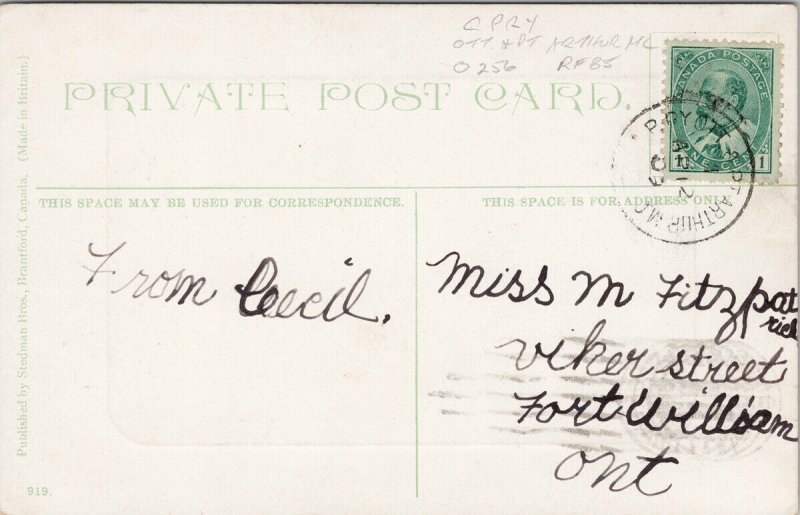 C PRY
OTT. & PT ARTHUR MC
O 256 RF 85
PRIVATE POST CARD.
CANADA POSTAGE
ONE CENT
1
PT ARTHUR M.C.
AP 12
09
THIS SPACE MAY BE USED FOR CORRESPONDENCE.
THIS SPACE IS FOR ADDRESS ONLY.
From Cecil.
Miss M Fitzpat
rick
viker street
Fort William
Ont
Published by Stedman Bros., Brantford, Canada. (Made in Britain.)
919.